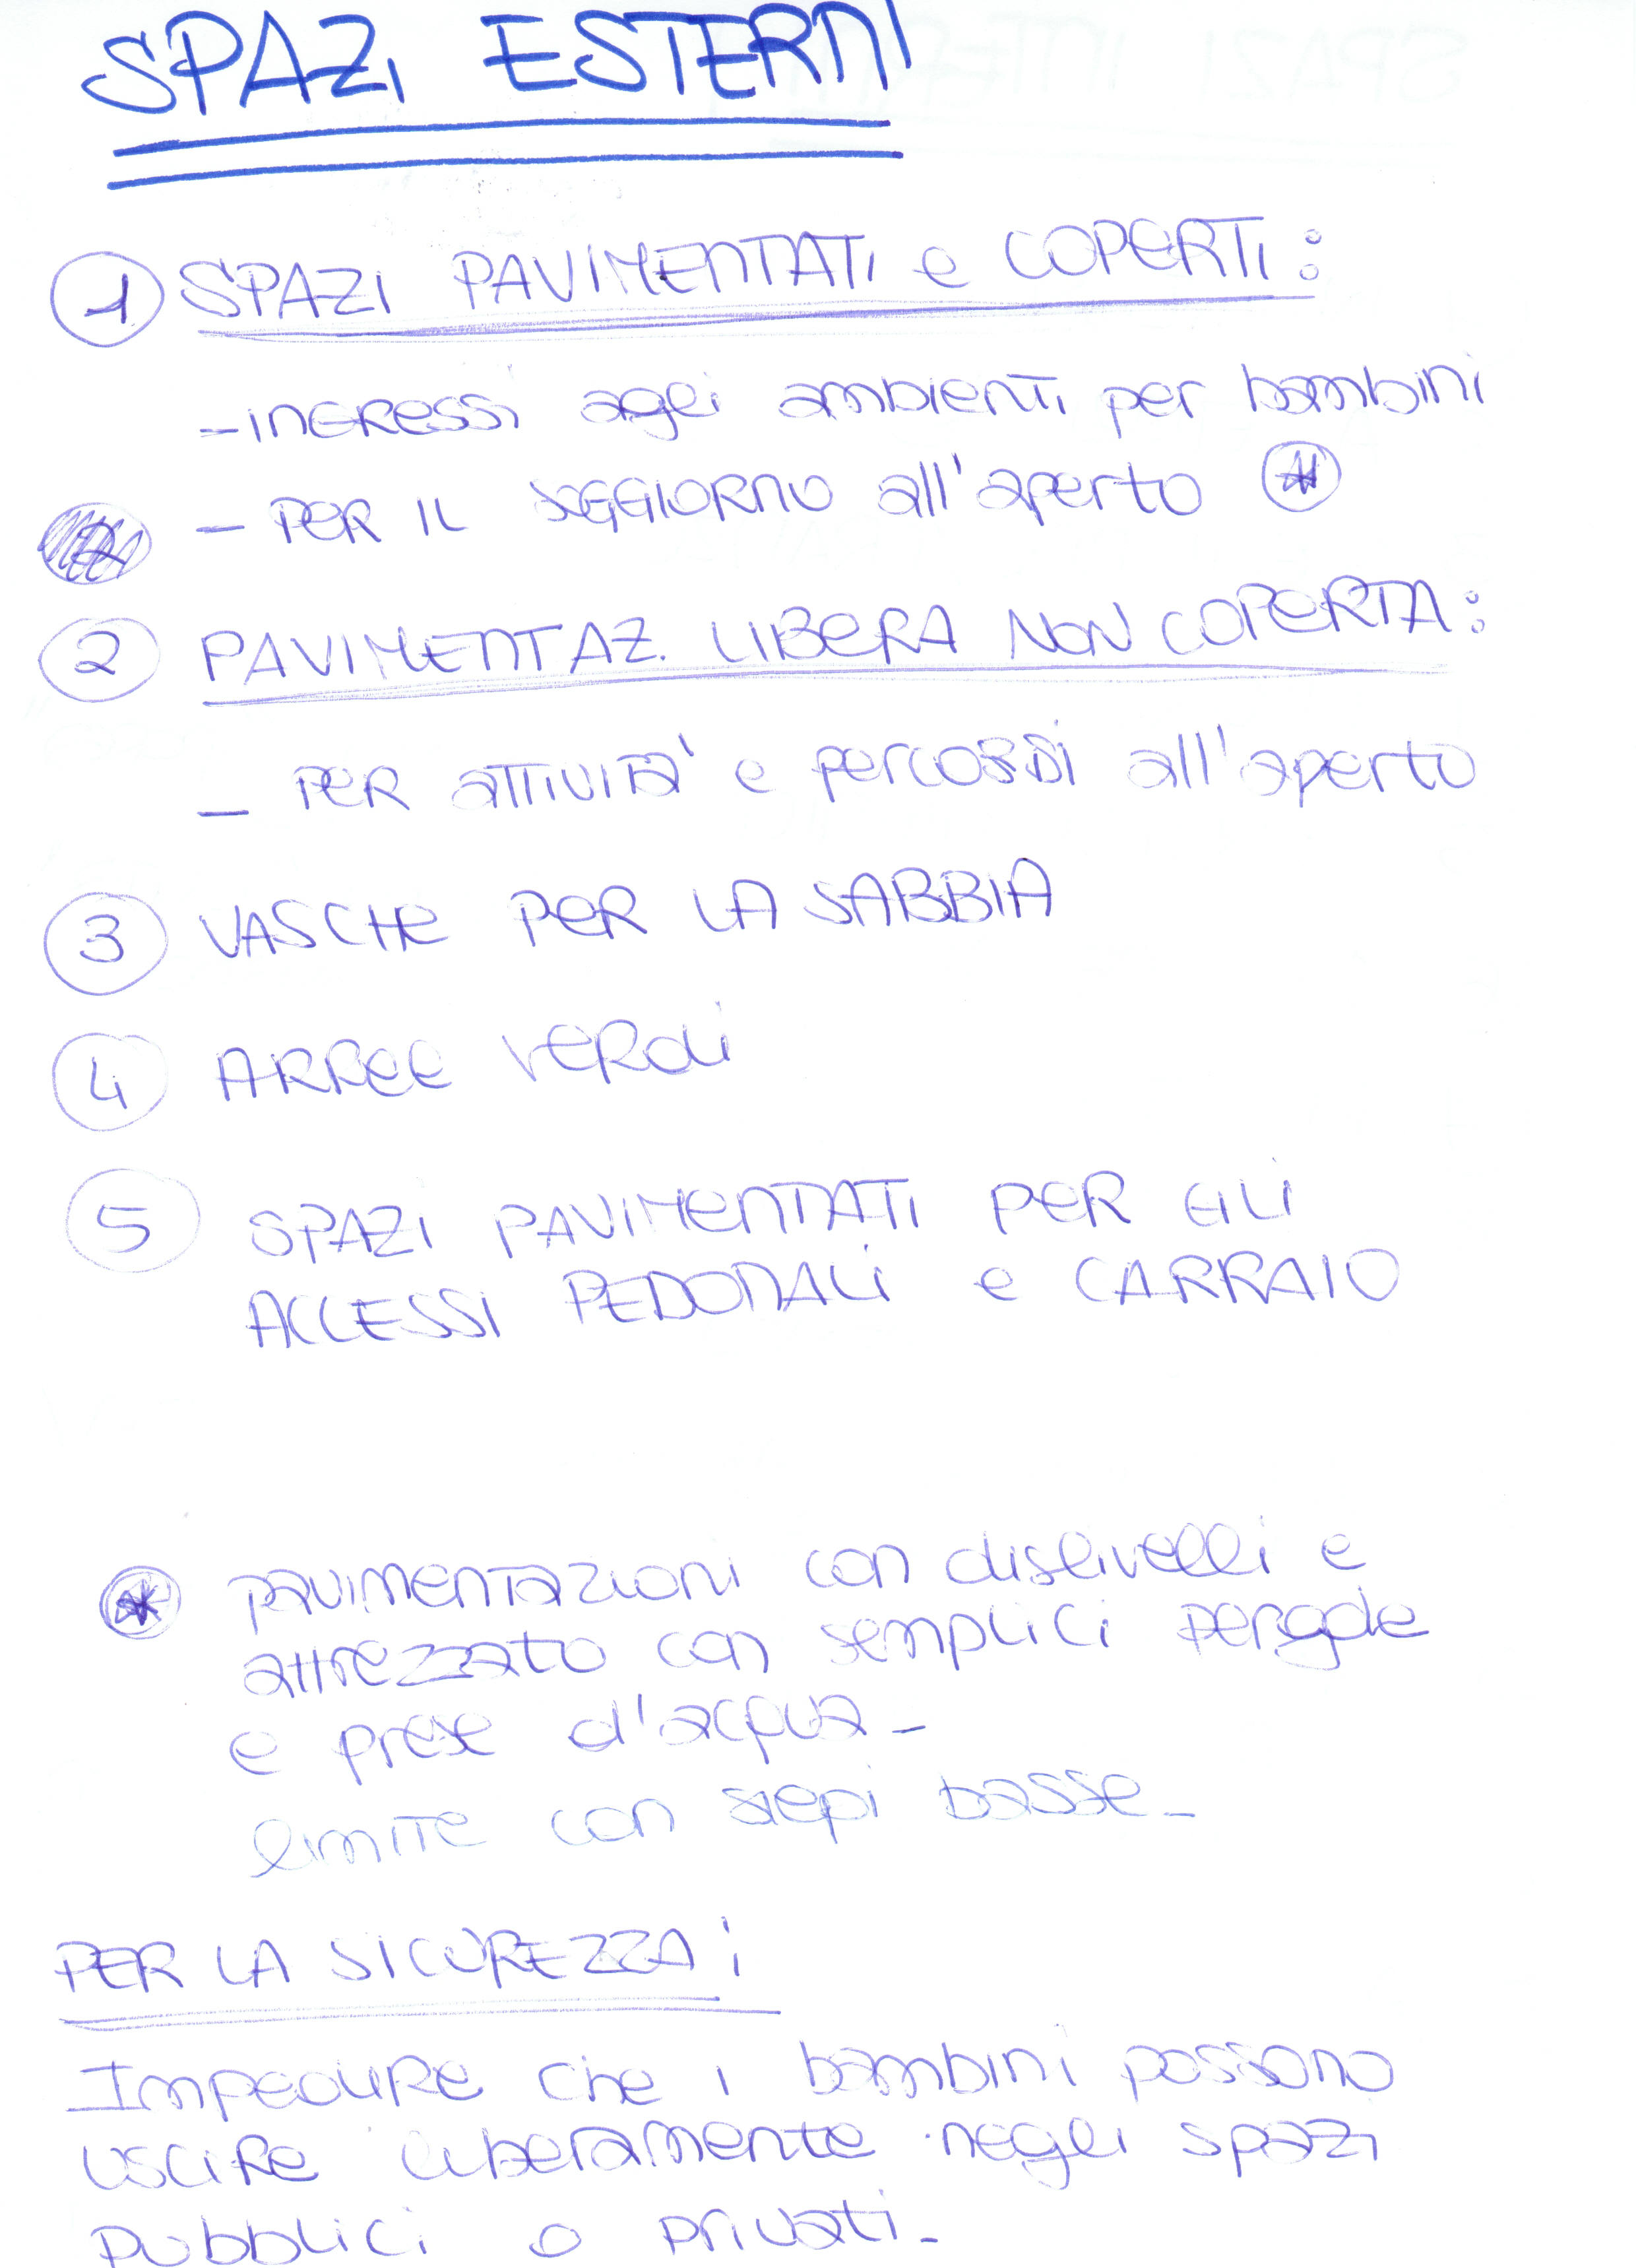 SPAZI ESTERNI
1 SPAZI PAVIMENTATI e COPERTI:
- INGRESSI agli ambienti per bambini
- PER IL SOGGIORNO all'aperto *
2 PAVIMENTAZ. LIBERA NON COPERTA:
- PER ATTIVITA' e percorsi all'aperto
3 VASCHE PER LA SABBIA
4 ARREE VERDI
5 SPAZI PAVIMENTATI PER GLI
ACCESSI PEDONALI e CARRAIO
* PAVIMENTAZIONI con dislivelli e
attrezzato con semplici pergole
e prese d'acqua -
limite con siepi basse -
PER LA SICUREZZA:
Impedire che i bambini possono
uscire liberamente negli spazi
pubblici o privati -